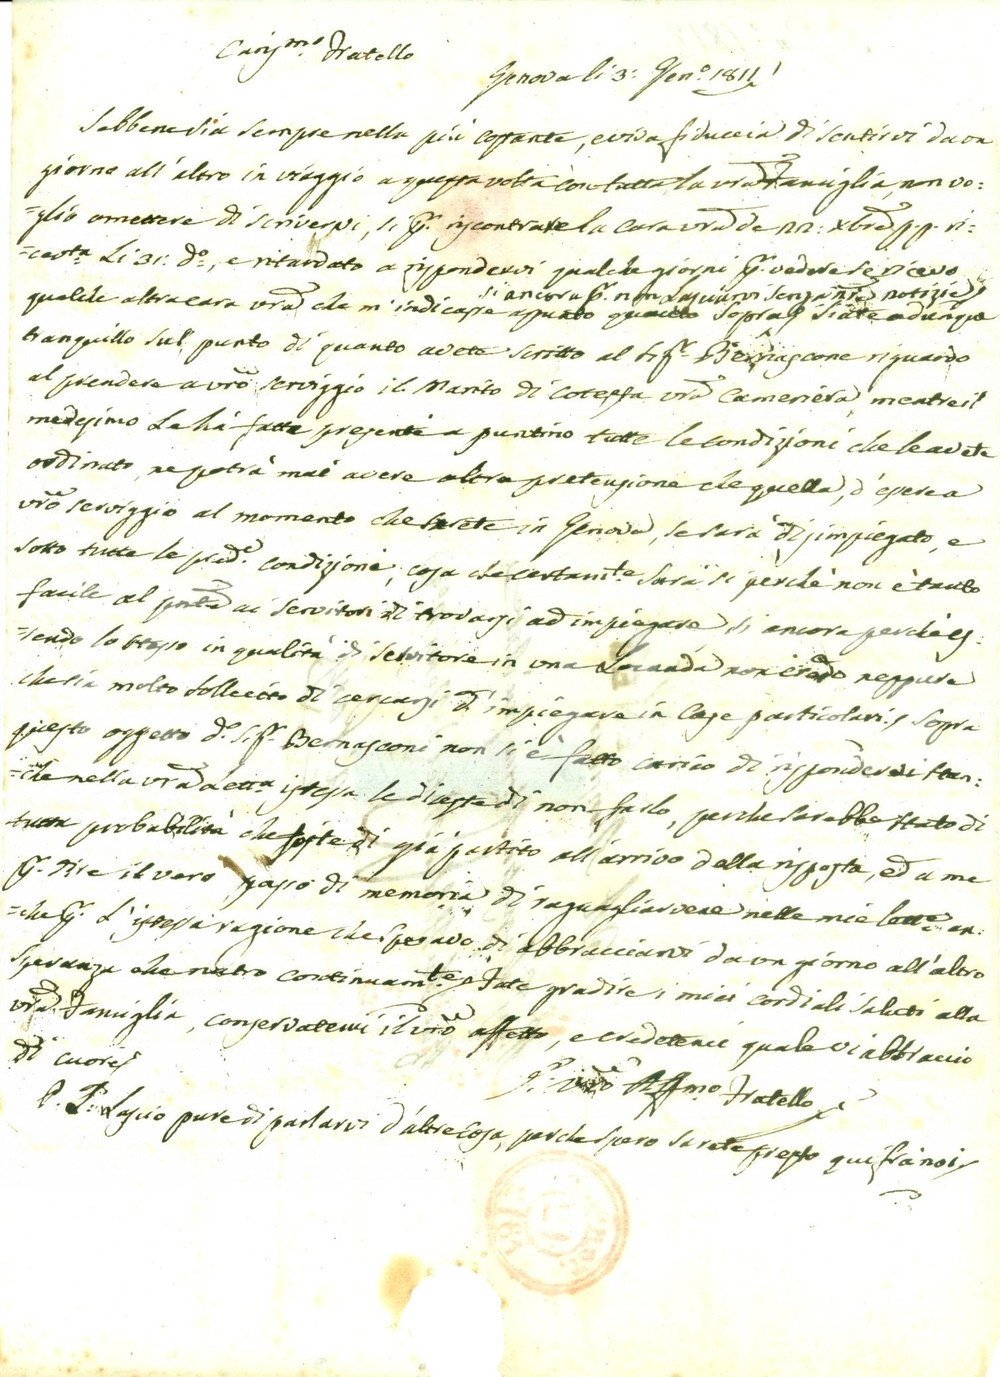 Cariss.mo Fratello
Genova li 3: Gen.o 1811
Sebbene sia sempre nella più costante, e viva fiduccia di sentirvi da un
giorno all'altro in viaggio a questa volta con tutta la vra Famiglia, non vo-
=glio omettere di scrivervi, si p. riscontrare la cara vra de 22: xbre p.p. ri-
=cevta li 31: do, e ritardato a rispondervi qualche giorni p. vedere se ricevo
qualche altra cara vra che m'indicasse appunto quanto sopra, si ancora p. non lasciarvi senza nre notizie. Siate adunque
tranquillo sul punto di quanto avete scritto al Sig. Bernascone riguardo
al prendere a vro serviggio il Marito di cotessa vra Cameriera, mentre il
medesimo le hà fatte presente a puntino tutte le condizioni che le avete
ordinato, ne potrà mai avere altra pretenzione che quella, d'essere a
vro serviggio al momento che sarete in Genova, se sarà disimpiegato, e
sotto tutte le pred.e condizioni, cosa che certam.te sarà si perchè non è tanto
facile al ai servitori di trovarsi ad impiegare si ancora perchè es-
=sendo lo stesso in qualità di servitore in una Locanda non credo neppure
che sia molto sollecito di cercarsi d'impiegare in Case particolari. Sopra
questo oggetto do Sig. Bernasconi non si è fatto carico di rispondervi stan-
=che nella vra Letta istessa le diceste di non farlo, perche sarebbe stato di
tutta probabilità che foste di già partito all'arrivo della risposta, ed a me
p. dire il vero passò di memoria di raguagliarvene nelle mie lette an-
=che p. l'istessa ragione che speravo di abbracciarvi da un giorno all'altro
speranza che nutro continuam.te. Fate gradire i miei cordiali saluti alla
vra Famiglia, conservatemi il vro affetto, e credetemi quale vi abbraccio
di cuore
Vro Aff.mo Fratello
P. S. Lascio pure di parlarvi d'altre cosa, perche spero sarete presto qui frà noi